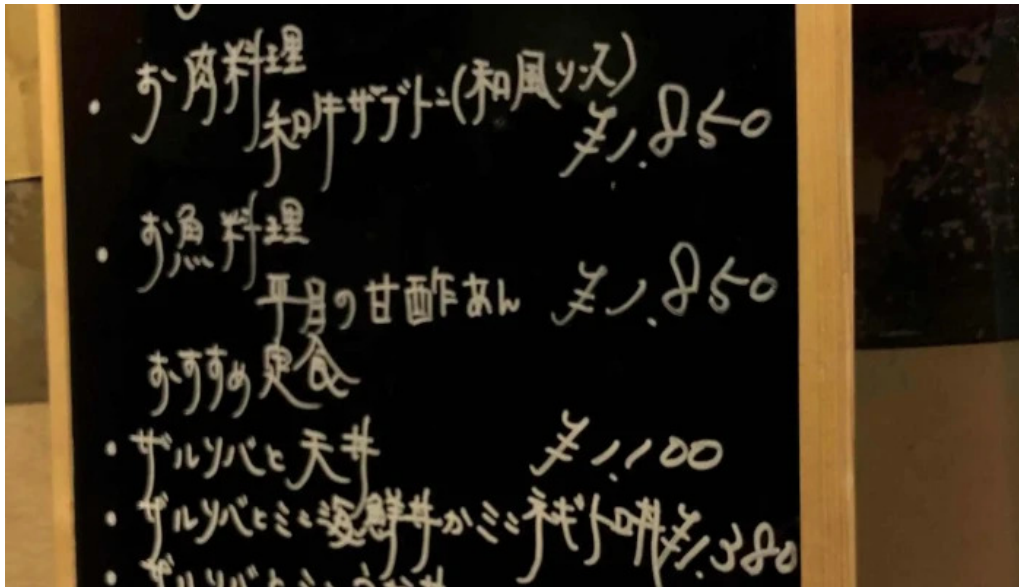 ・お肉料理
和牛ザブトン(和風ソース) ¥1.850
・お魚料理
平目の甘酢あん ¥1.850
おすすめ定食
・ザルソバと天丼 ¥1.100
・ザルソバとミニ海鮮丼かミニネギトロ丼 ¥1.380
・ザルソバとミニ